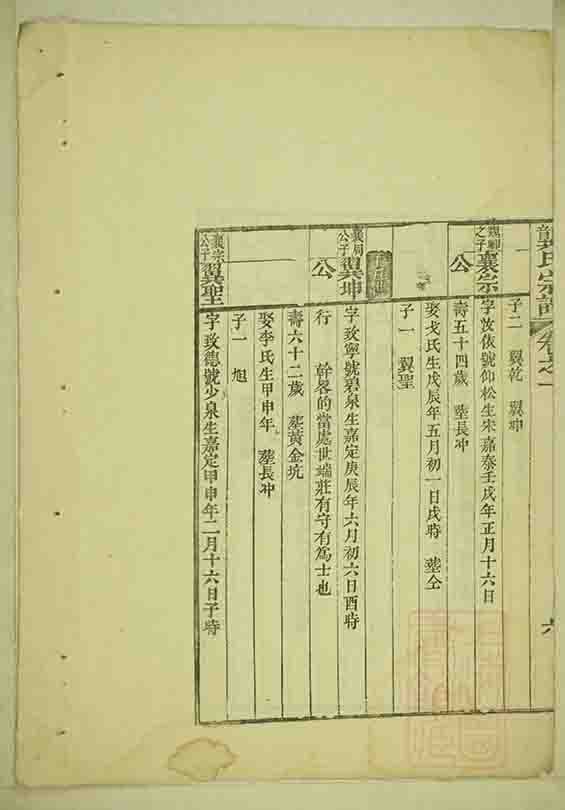 龔氏宗譜 卷之一 六
子二 翼乾 翼坤
之子 襄宗公
字汝依號仰松生宋嘉泰壬戌年正月十六日
壽五十四歲 塟長冲
娶戈氏生戊辰年五月初一日戌時 塟仝
子一 翼聖
襄局公子 翼坤公
字致寧號碧泉生嘉定庚辰年六月初六日酉時
行 幹畧的當處世端莊有守有爲士也
壽六十二歲 塟黃金坑
娶李氏生甲申年 塟長冲
子一 旭
襄宗公子 翼聖
字致德號少泉生嘉定甲申年二月十六日子時